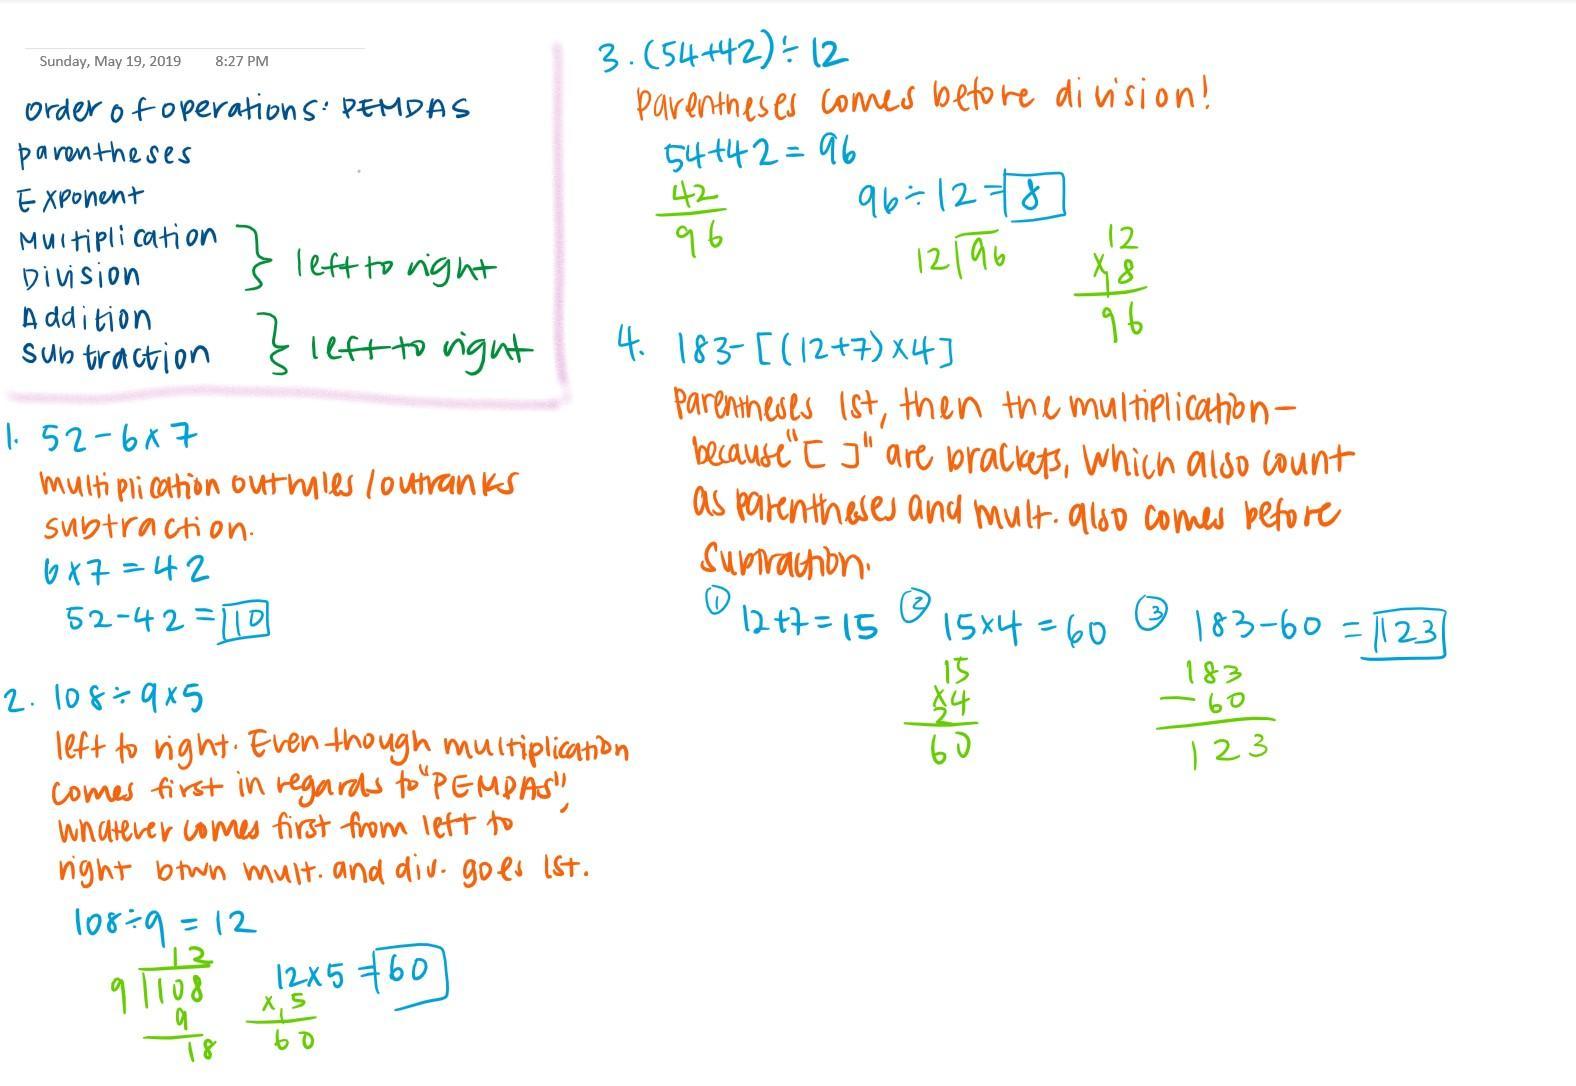 Sunday, May 19, 2019 8:27 PM
order of operations: PEMDAS
parentheses
Exponent
Multiplication
Division
} left to right
Addition
Subtraction
} left to right
1. 52-6x7
multiplication outrules/outranks
subtraction.
6x7=42
52-42=10
2. 108÷9x5
left to right. Even though multiplication
comes first in regards to "PEMDAS",
whatever comes first from left to
right btwn mult. and div. goes 1st.
108÷9=12
12
9 108
9
18
12x5=60
x 5
1
60
3. (54+42)÷12
Parentheses comes before division!
54+42=96
42
96
96÷12=8
12 96
12
x 8
1
96
4. 183-[(12+7)x4]
Parentheses 1st, then the multiplication-
because "[ ]" are brackets, which also count
as parentheses and mult. also comes before
subtraction.
① 12+7=15 ② 15x4=60 ③ 183-60=123
15
x4
2
60
183
-60
123